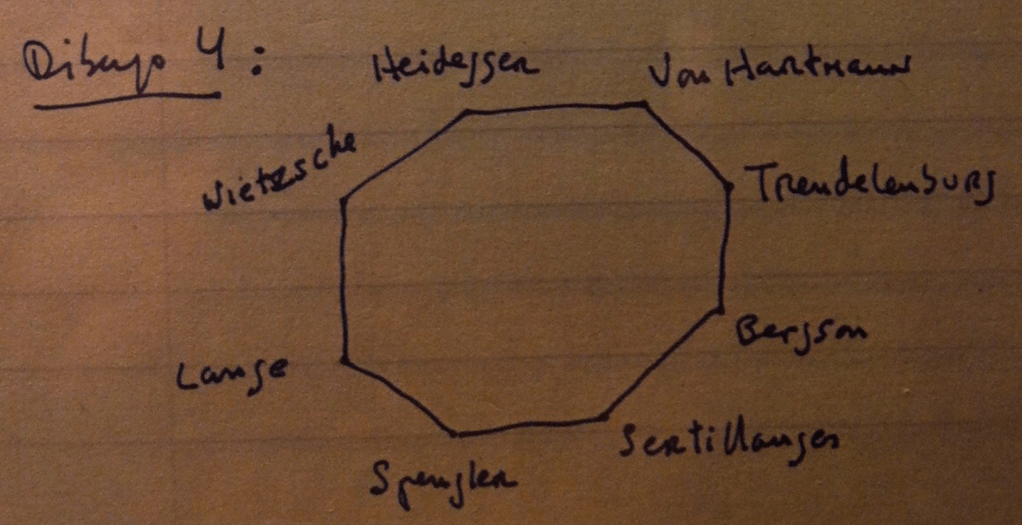 Dibujo 4:
Heidegger
Von Hartmann
Nietzsche
Trendelenburg
Bergson
Lange
Sertillanges
Spengler